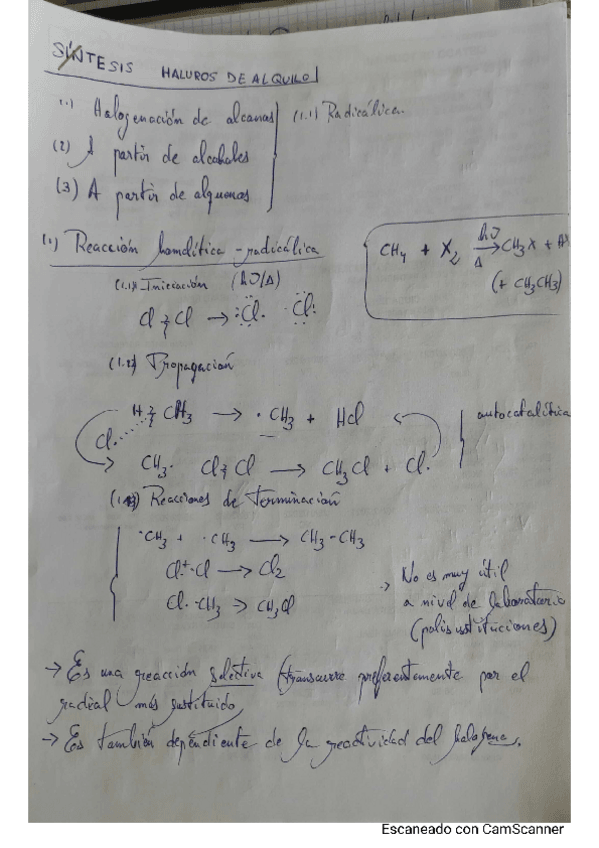 SÍNTESIS HALUROS DE ALQUILO
(1) Halogenación de alcanos (1.1) Radicálica.
(2) A partir de alcoholes
(3) A partir de alquenos
(1) Reacción homolítica - radicálica
CH4 + X2 hν Δ → CH3X + HX
(+ CH3CH3)
(1.1) Iniciación (hν/Δ)
Cl Cl → :Cl· Cl:
(1.2) Propagación
H CH3 → ·CH3 + HCl
Cl·
autocatalítica
CH3· Cl Cl → CH3Cl + Cl·
Reacciones de terminación
·CH3 + ·CH3 → CH3-CH3
Cl· ·Cl → Cl2
Cl· ·CH3 → CH3Cl
→ No es muy útil
a nivel de laboratorio
(polisustituciones)
→ Es una reacción selectiva (transcurre preferentemente por el
radical más sustituido
→ Es también dependiente de la reactividad del halógeno.
Escaneado con CamScanner